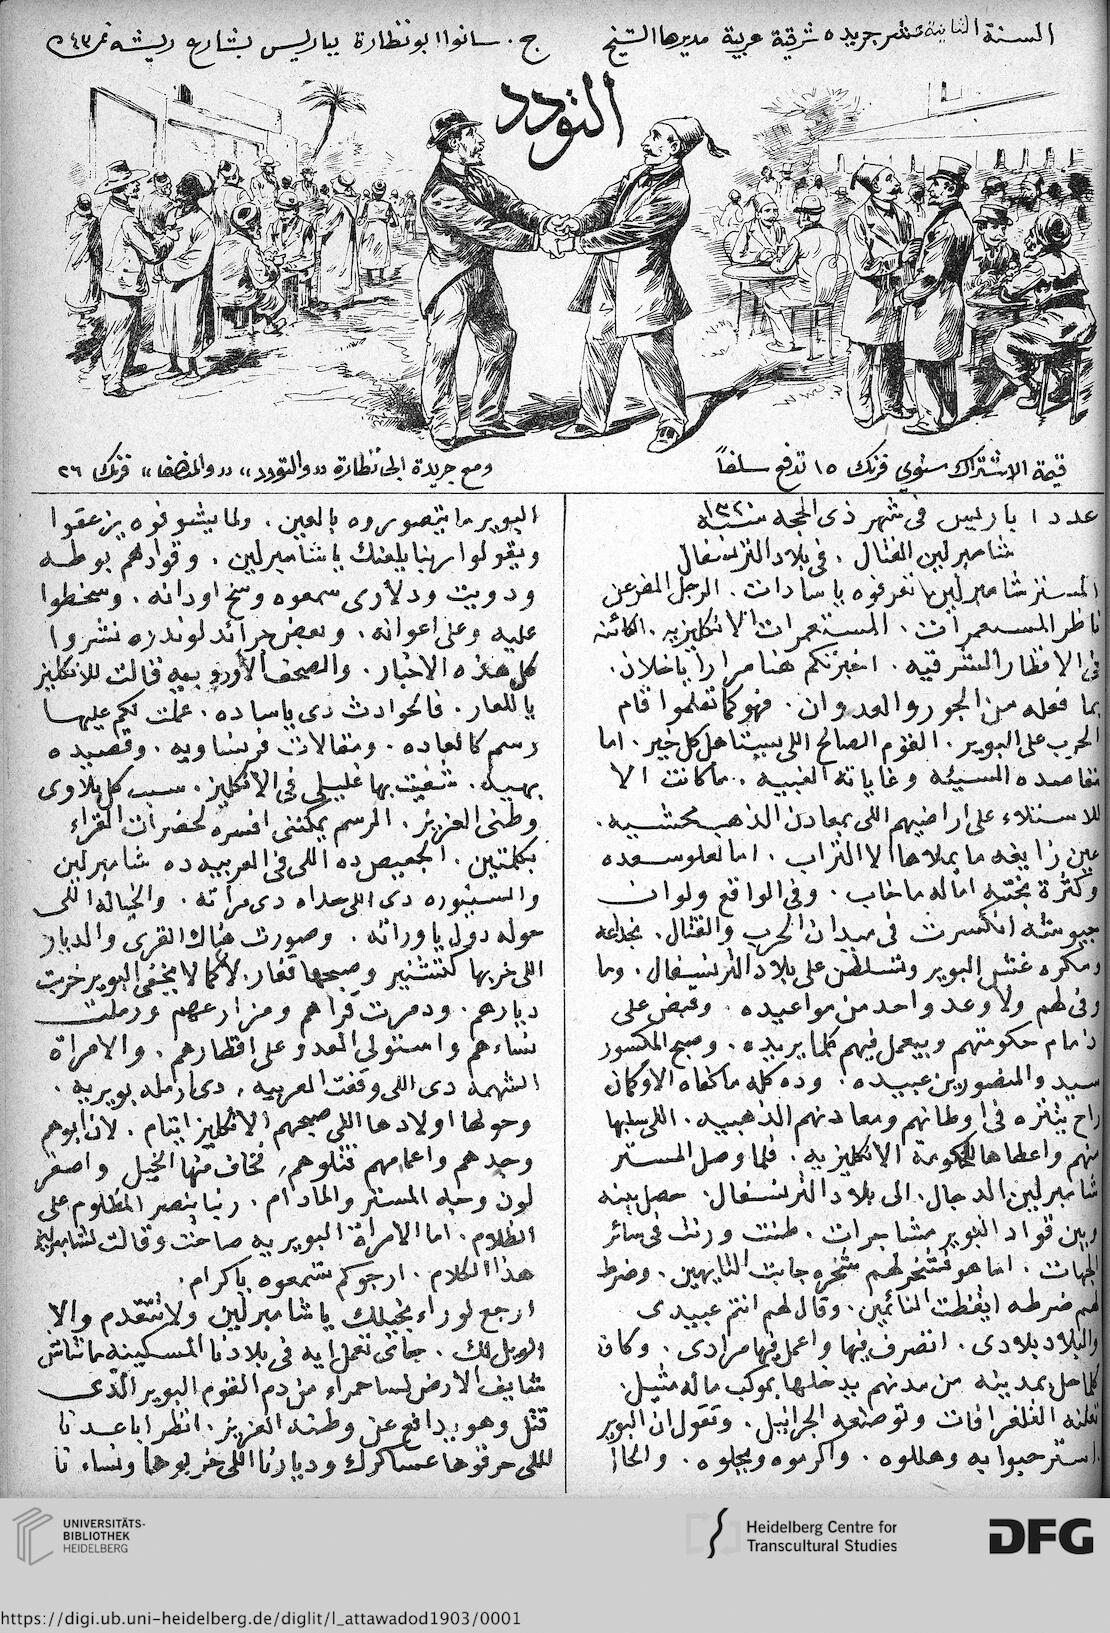 السنة الثانية عشر جريده شرقية عربية مديرها الشيخ ج. سانوا ابو نظارة بباريس بشارع ريشه نمر ٤٣
التودد
قيمة الاشتراك سنوي فرنك ١٥ تدفع سلفاً
ومع جريدة ابي نظارة «والتودد» «والمنصف» فرنك ٢٦
عدد ١ باريس في شهر ذى الحجه سنة ١٣٢٠
شامبرلين الفتال. فى بلاد الترنسفال
المستر شامبرلين تعرفوه يا سادات. الرجل المفزعن
ناظر المستعمرات. المستعمرات الانكليزيه. الكائنه
فى الاقطار الشرقيه. اخبرتكم هنا مرارا ياخلان.
بما فعله من الجور والعدوان. فهو كما تعلموا قام
الحرب على البوير. القوم الصالح اللى يستاهل كل خير. اما
مقاصده السيئه وغاياته الغبيه. ما كانت الا
للاستلاء على اراضيهم اللى بمعادن الذهب محشيه.
عين زايغه ما يملاها الا التراب. اما لعلو سعده
وكثرة بخته اماله ما خاب. وفى الواقع ولو ان
جيوشه انكسرت فى ميدان الحرب والقتال. بخداعه
ومكره غش البوير وتسلطن على بلاد الترنسفال. وما
وفى لهم ولا وعد واحد من مواعيده. وقبض على
زمام حكومتهم وبيعمل فيهم كلما يريده. وصبح المكسور
سيد والمنصورين عبيده. وده كله ما كفاه الا وكمان
راح يتنزه فى اوطانهم ومعادنهم الذهبيه. اللى سلبها
منهم واعطاها للحكومة الانكليزيه. فلما وصل المستر
شامبرلين الدجال. الى بلاد الترنسفال. حصل بينه
وبين قواد البوير مشاجرات. طنت ورنت فى سائر
الجهات. اما هو فشخر لهم شخره جابت التايهين. وضرط
لهم ضرطه ايقظت النائمين. وقال لهم انتم عبيدى
والبلاد بلادى. اتصرف فيها واعمل فيها مرادى. وكان
كلما حل بمدينه من مدنهم يدخلها بموكب ماله مثيل.
تعلنه التلغرافات وتوصفه الجرانيل. وتقول ان البوير
استرحبوا به وهللوه. واكرموه وبجلوه. والحال
البوير ما يتصوروه بالعين. ولما يشوفوه يزعقوا
ويقولوا ربنا يلعنك يا شامبرلين. وقوادهم بوطه
ودويت ودلارى سمعوه وسخ اودانه. وسخطوا
عليه وعلى اعوانه. وبعض جرائد لوندره نشروا
كل هذه الاخبار. والصحف الأوروبيه قالت للانكليز
يا للعار. فالحوادث دى ياساده. عملت لكم عليها
رسم كالعاده. ومقالات فرنساويه. وقصيده
بهيه. شفيت بها غليلى فى الانكليز. سبب كل بلاوى
وطنى العزيز. الرسم يمكننى افسره لحضرات القراء
بكلمتين. الجعيص ده اللى فى العربيه ده شامبرلين
والسنيوره دى اللى حداه دى مراته. والخياله اللى
حوله دول ياوراته. وصورت هناك القرى والديار
اللى خربها كتشنير وصبحها قفار. لأ كما لا يخفى البوير خربت
ديارهم. ودمرت قراهم ومزارعهم ورملت
نساءهم واستولى العدو على اقطارهم. والامراة
الشهمة دى اللى وقفت العربيه. دى ارمله بويريه.
وحولها اولادها اللى صبحهم الانكليز ايتام. لان ابوهم
وجدهم واعمامهم قتلوهم. فخاف منها الخيل واصفر
لون وجه المستر والمادام. ربنا ينصر المظلوم على
الظلام. اما الامراة البويريه صاحت وقالت لشامبرلين
هذا الكلام. ارجوكم تسمعوه ياكرام.
ارجع لوراء بخيلك يا شامبرلين ولا تتقدم والا
الويل لك. جاى تعمل ايه فى بلادنا المسكينه مانتاش
شايف الأرض لسا حمراء من دم القوم البوير الذى
قتل وهو يدافع عن وطنه العزيز. انظر اباعدنا
اللى حرقوها عساكرك وديارنا اللى خربوها ونساءنا
UNIVERSITÄTS-
BIBLIOTHEK
HEIDELBERG
Heidelberg Centre for
Transcultural Studies
DFG
https://digi.ub.uni-heidelberg.de/diglit/l_attawadod1903/0001